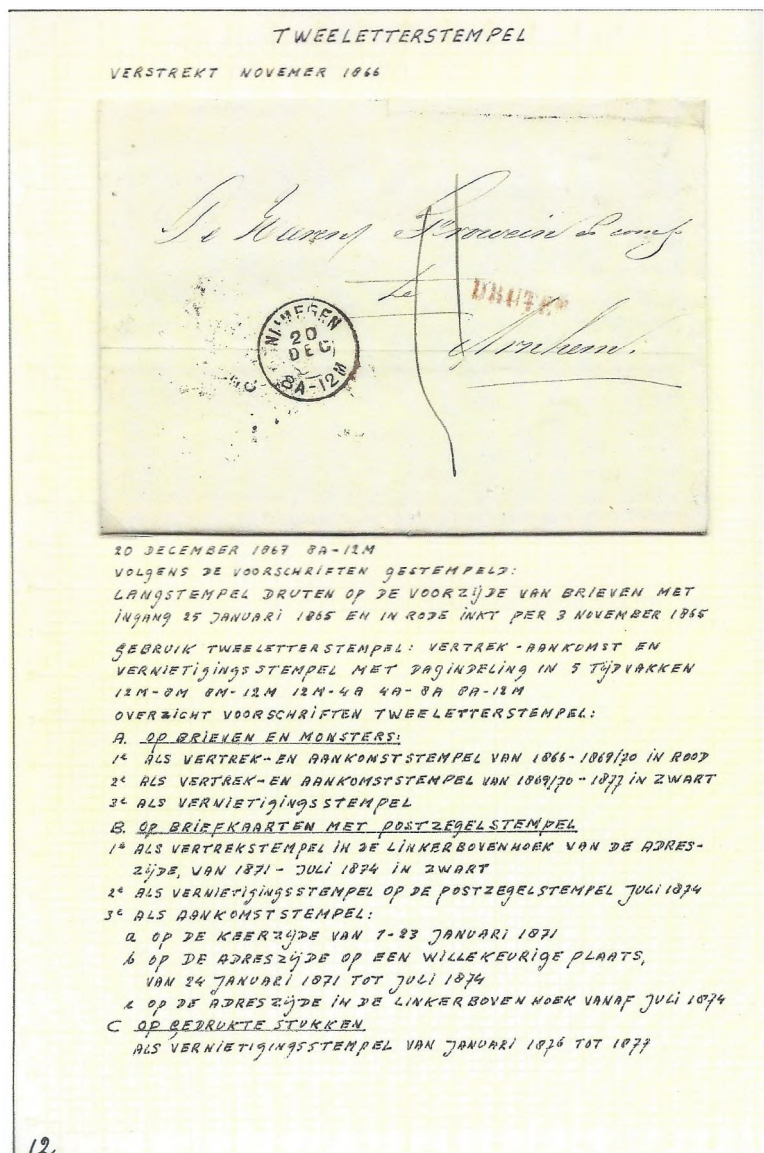 TWEELETTERSTEMPEL
VERSTREKT NOVEMER 1866
De Heeren Frowein & comp
te
DRUTEN
Arnhem.
NIJMEGEN
20
DEC
8A-12M
20 DECEMBER 1867 8A-12M
VOLGENS DE VOORSCHRIFTEN GESTEMPELD:
LANGSTEMPEL DRUTEN OP DE VOORZIJDE VAN BRIEVEN MET
INGANG 25 JANUARI 1865 EN IN RODE INKT PER 3 NOVEMBER 1865
GEBRUIK TWEELETTERSTEMPEL: VERTREK-AANKOMST EN
VERNIETIGINGSSTEMPEL MET DAGINDELING IN 5 TIJDVAKKEN
12M-8M 8M-12M 12M-4A 4A-8A 8A-12M
OVERZICHT VOORSCHRIFTEN TWEELETTERSTEMPEL:
A. OP BRIEVEN EN MONSTERS:
1e ALS VERTREK-EN AANKOMSTSTEMPEL VAN 1866-1869/70 IN ROOD
2e ALS VERTREK-EN AANKOMSTSTEMPEL VAN 1869/70-1877 IN ZWART
3e ALS VERNIETIGINGSSTEMPEL
B. OP BRIEFKAARTEN MET POSTZEGELSTEMPEL
1e ALS VERTREKSTEMPEL IN DE LINKERBOVENHOEK VAN DE ADRES-
ZIJDE, VAN 1871- JULI 1874 IN ZWART
2e ALS VERNIETIGINGSSTEMPEL OP DE POSTZEGELSTEMPEL JULI 1874
3e ALS AANKOMSTSTEMPEL:
a OP DE KEERZIJDE VAN 1-23 JANUARI 1871
b OP DE ADRESZIJDE OP EEN WILLEKEURIGE PLAATS,
VAN 24 JANUARI 1871 TOT JULI 1874
c OP DE ADRESZIJDE IN DE LINKERBOVENHOEK VANAF JULI 1874
C OP GEDRUKTE STUKKEN
ALS VERNIETIGINGSSTEMPEL VAN JANUARI 1876 TOT 1877
12